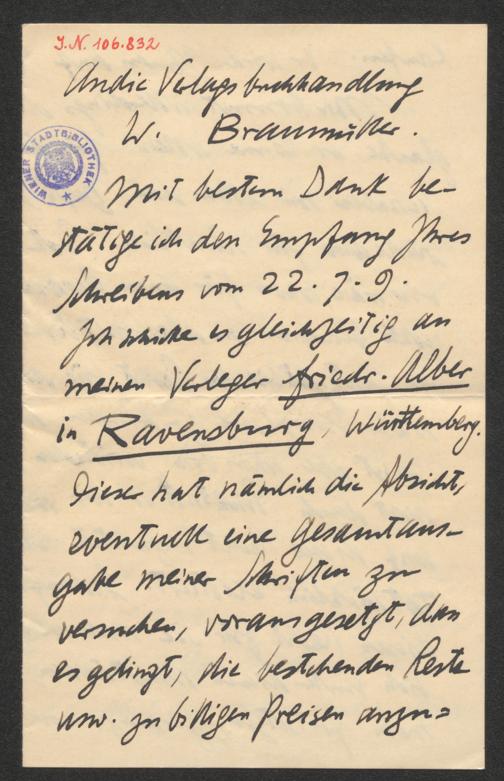 J.N. 106.832
An die Verlagsbuchhandlung
W. Braumüller.
WIENER STADTBIBLIOTHEK
Mit bestem Dank be-
stätige ich den Empfang Ihres
Schreibens vom 22.7.9.
Ich schicke es gleichzeitig an
meinen Verleger Friedr. Alber
in Ravensburg, Württemberg.
Dieser hat nämlich die Absicht,
eventuell eine Gesamtaus-
gabe meiner Schriften zu
versuchen, vorausgesetzt, dass
es gelingt, die bestehenden Reste
usw. zu billigen Preisen anzu=